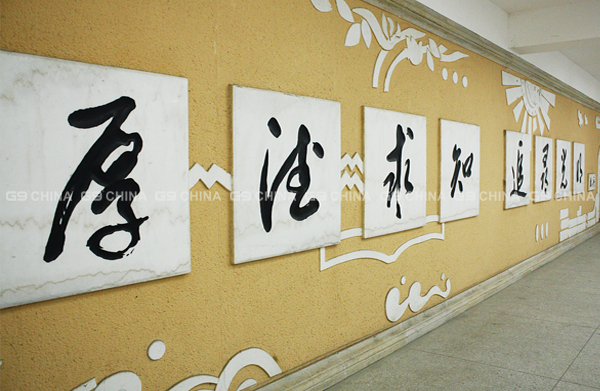 厚德求知 追寻光明
G9 CHINA G9 CHINA G9 CHINA G9 CHINA G9 CHINA G9 CHINA